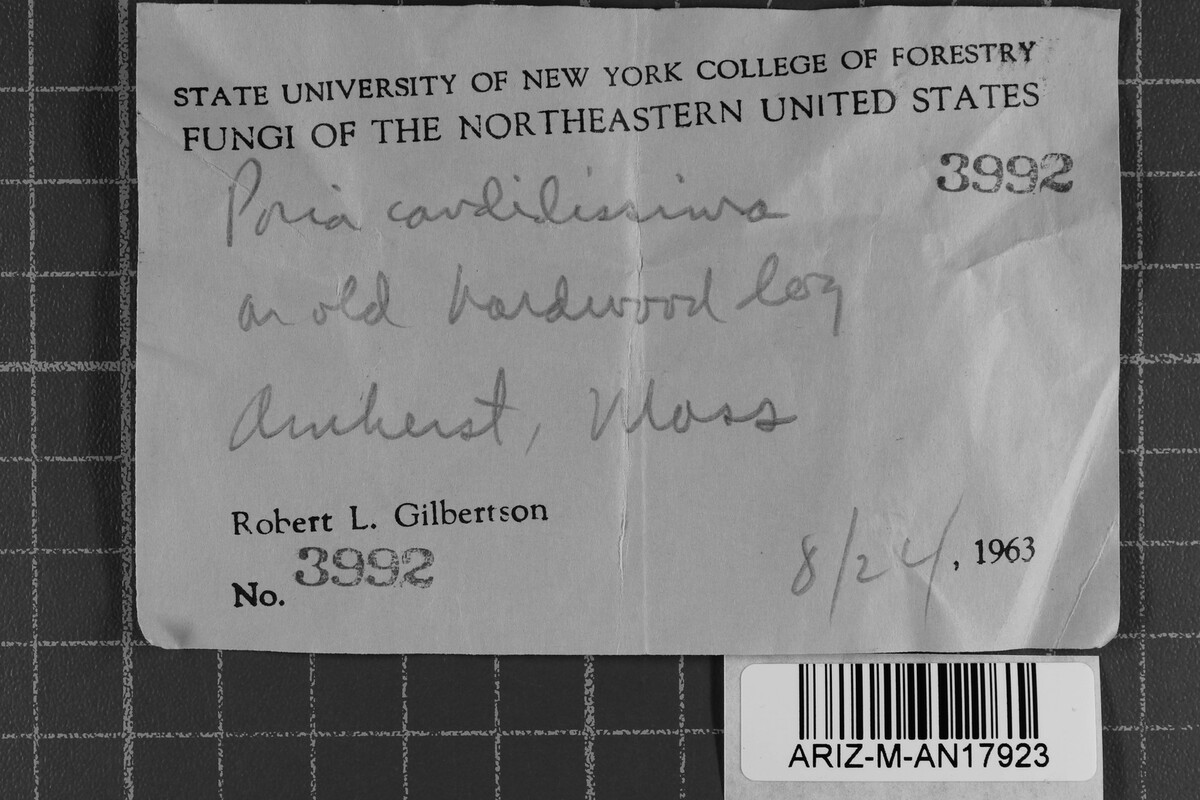 STATE UNIVERSITY OF NEW YORK COLLEGE OF FORESTRY
FUNGI OF THE NORTHEASTERN UNITED STATES
3992
Poria candidissima
on old hardwood log
Amherst, Mass
Robert L. Gilbertson
No. 3992
8/24/, 1963
ARIZ-M-AN17923